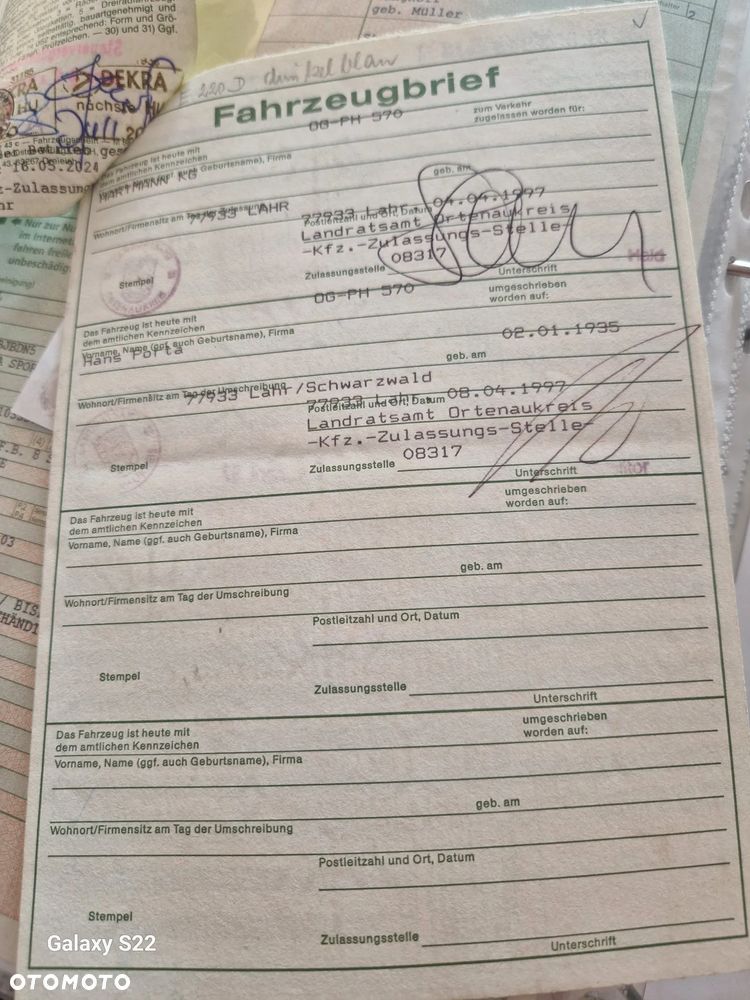 geb. Müller
2
5 = Dreiradfahrzeug
bauartgenehmigt und
entsprechend: Form und Grö-
Prüfzeichen. — 30) und 31) Ggf.
DEKRA
HU
nächste HU
18.03.2024
z-Zulassung
hr
Nur zur
im Internet
fahren freile
unbeschädig
E 220 D dunkelblau
Fahrzeugbrief
OG-PH 570
zum Verkehr
zugelassen worden für:
Das Fahrzeug ist heute mit
dem amtlichen Kennzeichen
Vorname, Name (ggf. auch Geburtsname), Firma
HARTMANN KG
geb. am
Wohnort/Firmensitz am Tag der Zulassung
77933 LAHR
77933 Lahr 04.04.1997
Postleitzahl und Ort, Datum
Landratsamt Ortenaukreis
-Kfz.-Zulassungs-Stelle-
08317
Stempel
Zulassungsstelle
Unterschrift
Held
OG-PH 570
umgeschrieben
worden auf:
Das Fahrzeug ist heute mit
dem amtlichen Kennzeichen
Vorname, Name (ggf. auch Geburtsname), Firma
Hans Porta
02.01.1935
geb. am
Wohnort/Firmensitz am Tag der Umschreibung
77933 Lahr/Schwarzwald
77933 Lahr 08.04.1997
Postleitzahl und Ort, Datum
Landratsamt Ortenaukreis
-Kfz.-Zulassungs-Stelle-
08317
Stempel
Zulassungsstelle
Unterschrift
umgeschrieben
worden auf:
Das Fahrzeug ist heute mit
dem amtlichen Kennzeichen
Vorname, Name (ggf. auch Geburtsname), Firma
geb. am
Wohnort/Firmensitz am Tag der Umschreibung
Postleitzahl und Ort, Datum
Stempel
Zulassungsstelle
Unterschrift
umgeschrieben
worden auf:
Das Fahrzeug ist heute mit
dem amtlichen Kennzeichen
Vorname, Name (ggf. auch Geburtsname), Firma
geb. am
Wohnort/Firmensitz am Tag der Umschreibung
Postleitzahl und Ort, Datum
Stempel
Zulassungsstelle
Unterschrift
Galaxy S22
OTOMOTO